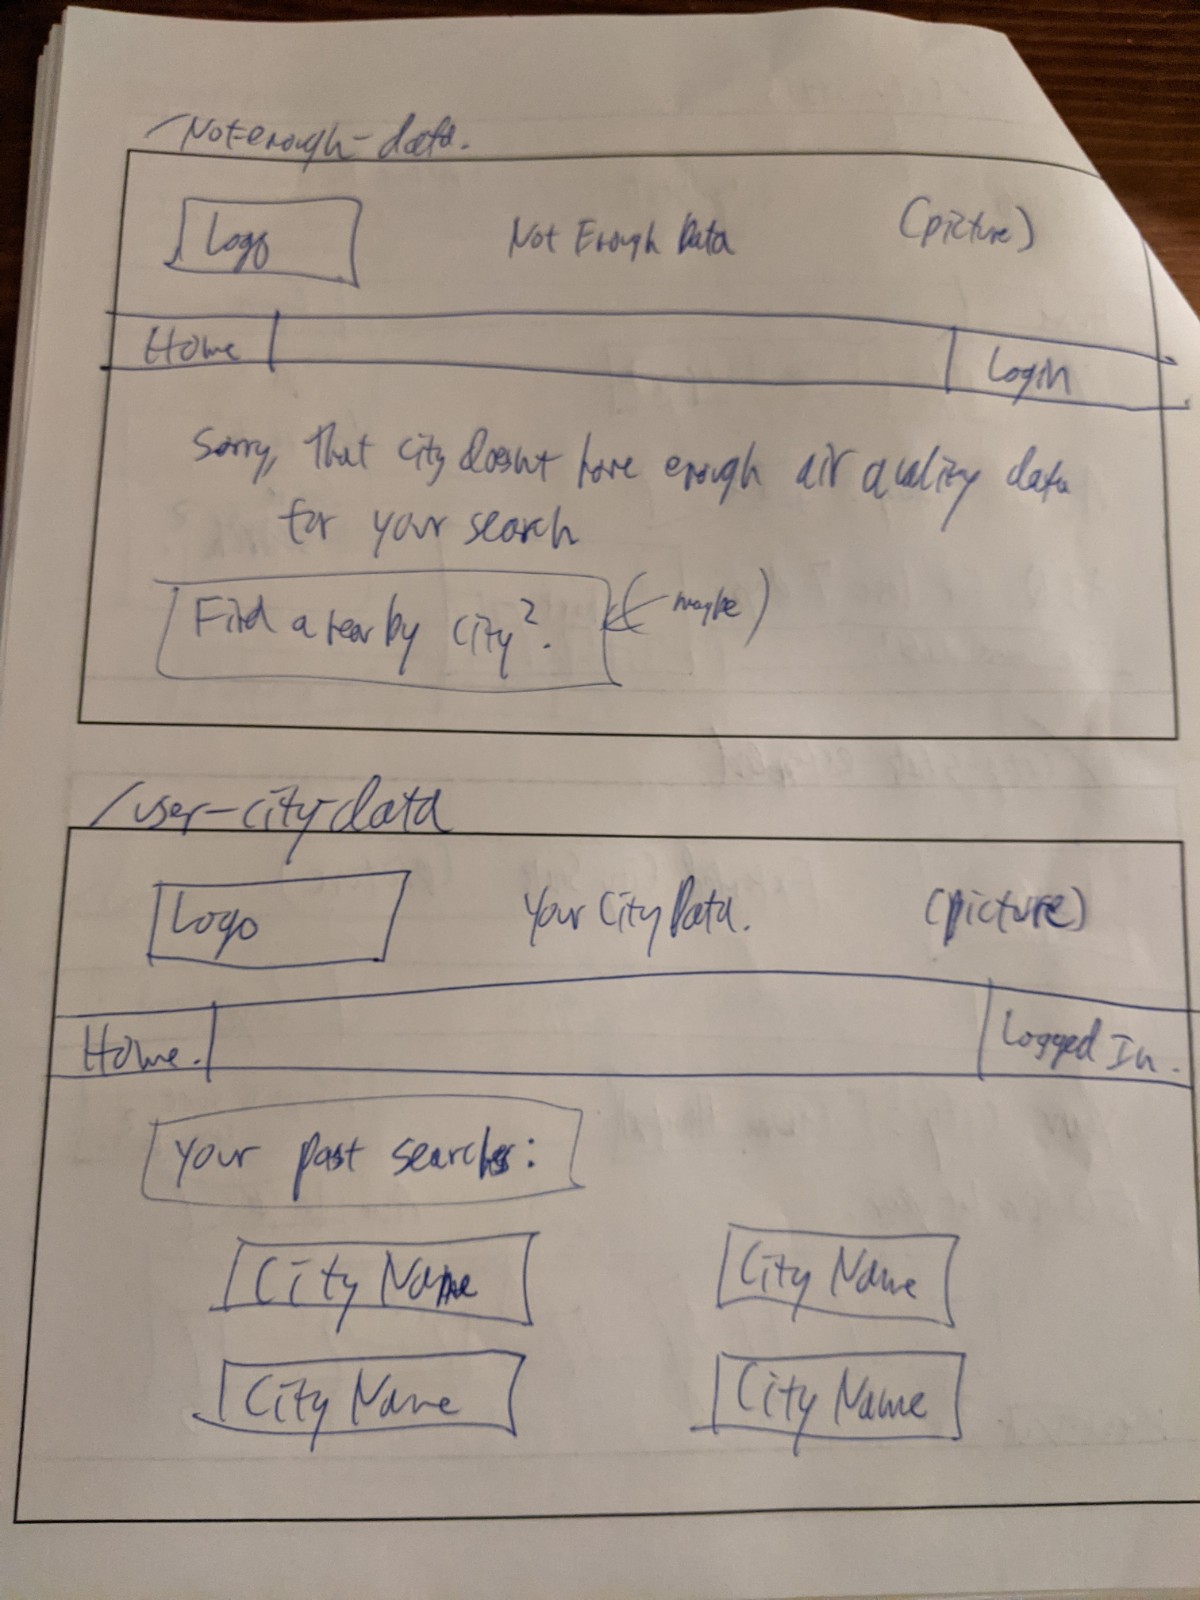 /Not-enough-data.
Logo
Not Enough Data
(picture)
Home
Login
Sorry, that city doesnt have enough air quality data
for your search
Find a nearby city?.
(← maybe)
/user-city-data
Logo
Your City Data.
(picture)
Home.
Logged In.
Your past searches:
City Name
City Name
City Name
City Name